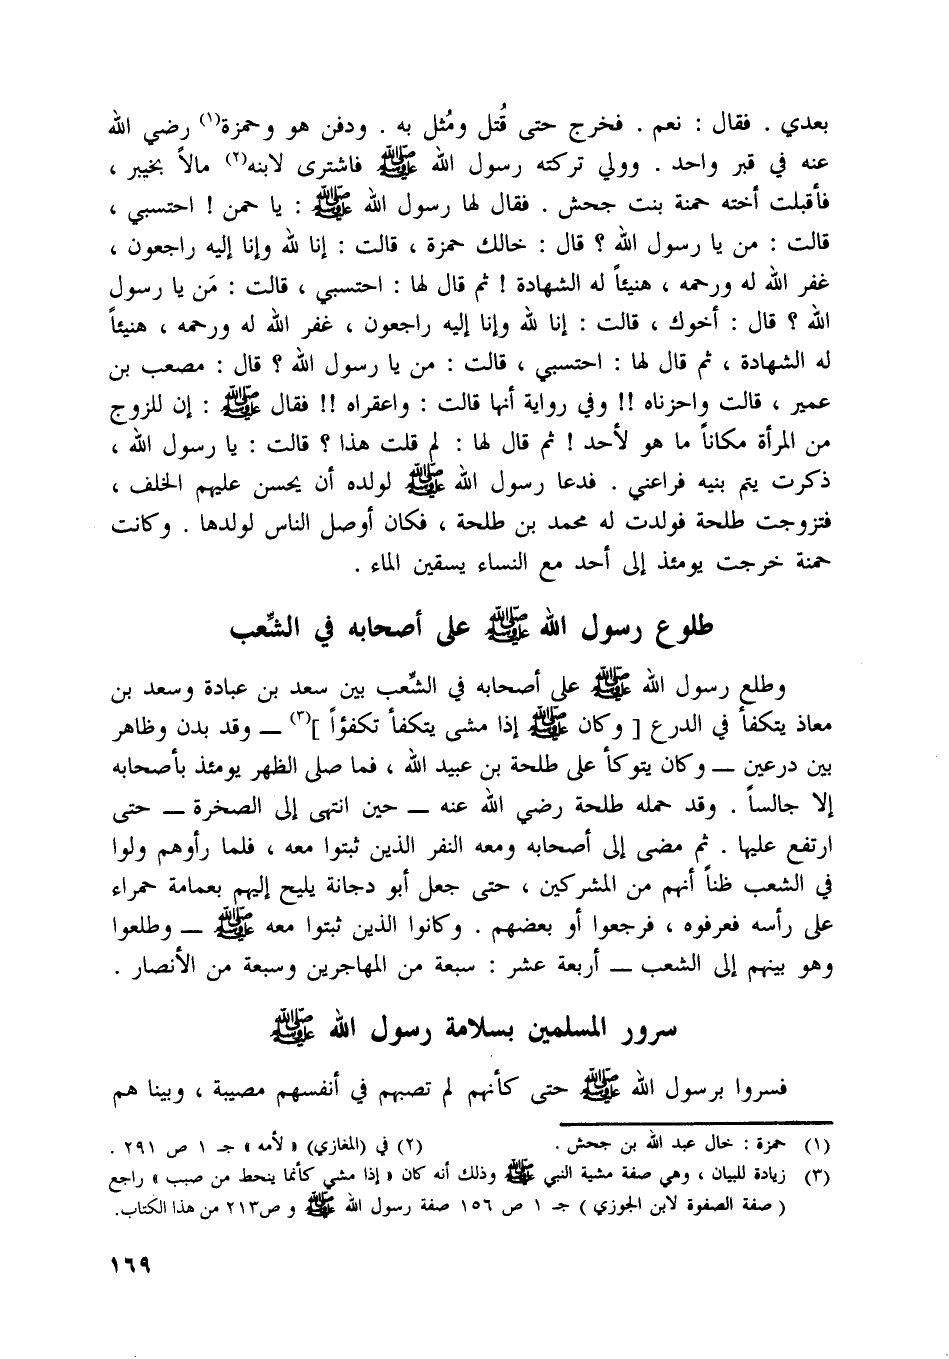 بعدي . فقال : نعم . فخرج حتى قُتل ومُثل به . ودفن هو وحمزة(١) رضي الله
عنه في قبر واحد . وولي تركته رسول الله ﷺ فاشترى لابنه(٢) مالاً بخيبر ،
فأقبلت أخته حمنة بنت جحش . فقال لها رسول الله ﷺ : يا حمن ! احتسبي ،
قالت : من يا رسول الله ؟ قال : خالك حمزة ، قالت : إنا لله وإنا إليه راجعون ،
غفر الله له ورحمه ، هنيئاً له الشهادة ! ثم قال لها : احتسبي ، قالت : مَن يا رسول
الله ؟ قال : أخوك ، قالت : إنا لله وإنا إليه راجعون ، غفر الله له ورحمه ، هنيئاً
له الشهادة ، ثم قال لها : احتسبي ، قالت : من يا رسول الله ؟ قال : مصعب بن
عمير ، قالت واحزناه !! وفي رواية أنها قالت : واعقراه !! فقال ﷺ : إن للزوج
من المرأة مكاناً ما هو لأحد ! ثم قال لها : لم قلت هذا ؟ قالت : يا رسول الله ،
ذكرت يتم بنيه فراعني . فدعا رسول الله ﷺ لولده أن يحسن عليهم الخلف ،
فتزوجت طلحة فولدت له محمد بن طلحة ، فكان أوصل الناس لولدها . وكانت
حمنة خرجت يومئذ إلى أحد مع النساء يسقين الماء .
طلوع رسول الله ﷺ على أصحابه في الشِّعب
وطلع رسول الله ﷺ على أصحابه في الشِّعب بين سعد بن عبادة وسعد بن
معاذ يتكفأ في الدرع [ وكان ﷺ إذا مشى يتكفأ تكفؤاً ](٣) ــ وقد بدن وظاهر
بين درعين ــ وكان يتوكأ على طلحة بن عبيد الله ، فما صلى الظهر يومئذ بأصحابه
إلا جالساً . وقد حمله طلحة رضي الله عنه ــ حين انتهى إلى الصخرة ــ حتى
ارتفع عليها . ثم مضى إلى أصحابه ومعه النفر الذين ثبتوا معه ، فلما رأوهم ولوا
في الشعب ظناً أنهم من المشركين ، حتى جعل أبو دجانة يليح إليهم بعمامة حمراء
على رأسه فعرفوه ، فرجعوا أو بعضهم . وكانوا الذين ثبتوا معه ﷺ ــ وطلعوا
وهو بينهم إلى الشعب ــ أربعة عشر : سبعة من المهاجرين وسبعة من الأنصار .
سرور المسلمين بسلامة رسول الله ﷺ
فسروا برسول الله ﷺ حتى كأنهم لم تصبهم في أنفسهم مصيبة ، وبينا هم
(١) حمزة : خال عبد الله بن جحش . (٢) في (المغازي) « لأمه » جـ ١ ص ٢٩١ .
(٣) زيادة للبيان ، وهي صفة مشية النبي ﷺ وذلك أنه كان « إذا مشي كأنما ينحط من صبب » راجع
( صفة الصفوة لابن الجوزي ) جـ ١ ص ١٥٦ صفة رسول الله ﷺ و ص٢١٣ من هذا الكتاب.
١٦٩